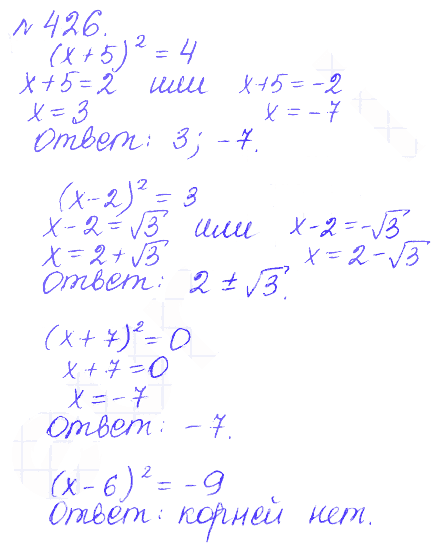 № 426.
(x+5)² = 4
x+5=2 или x+5=-2
x=3 x=-7
Ответ: 3; -7.
(x-2)² = 3
x-2=√3 или x-2=-√3
x=2+√3 x=2-√3
Ответ: 2 ± √3.
(x+7)²=0
x+7=0
x=-7
Ответ: -7.
(x-6)² = -9
Ответ: корней нет.